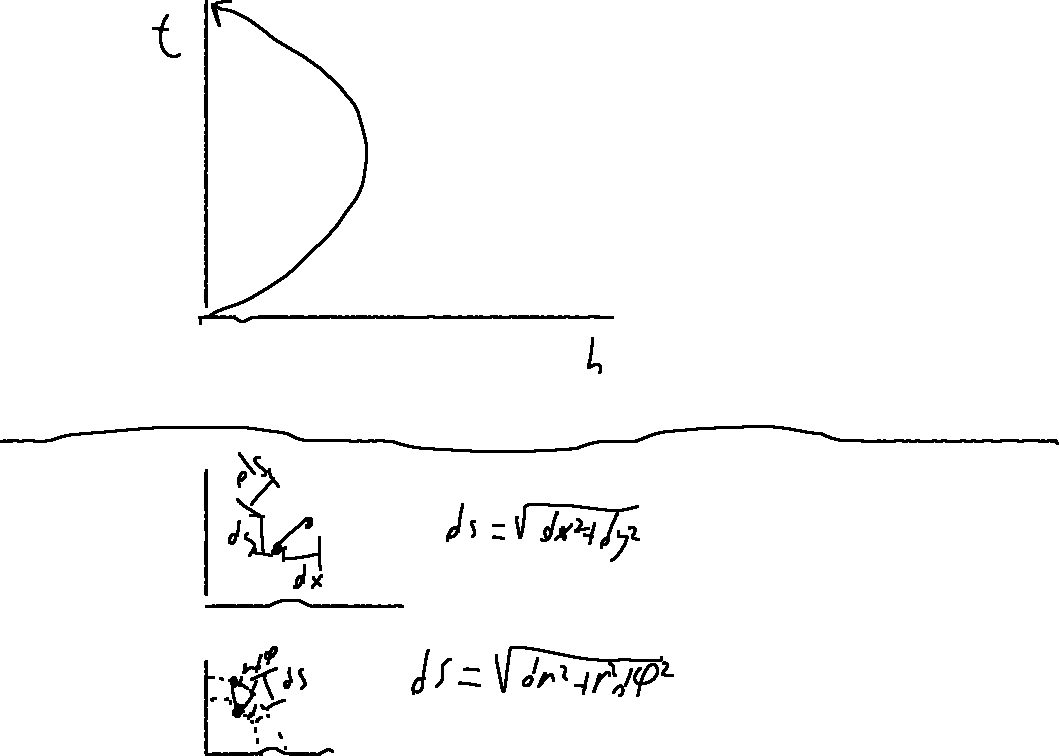 t
h
ds
dy
dx
ds = √dx²+dy²
rdφ
ds
ds = √dr²+r²dφ²